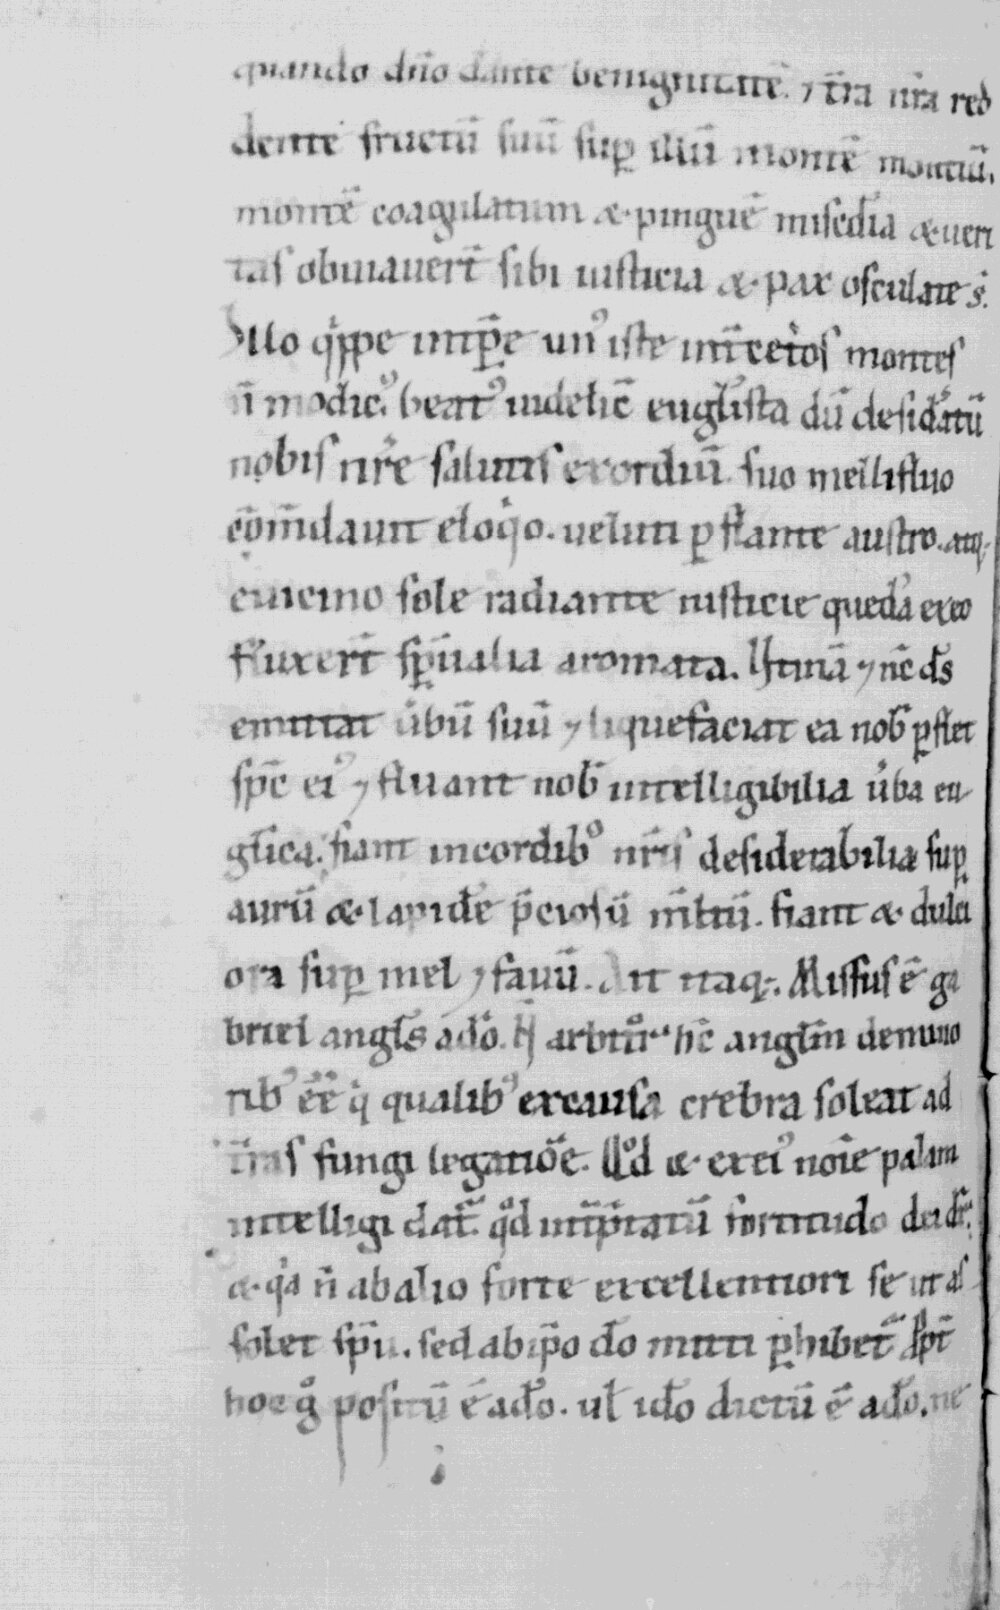 quando dño dante benignitatē. ⁊ t̄ra nr̄a red
dente fructū suū sup illū montē montiū.
montē coagulatum & pinguē mīsedia & ueri
tas obuiauer̄t sibi iusticia & pax osculate s̄.
Illo qͥppe tēpe unꝰ iste int̄ ceṫos montes
n̄ modicꝰ beatꝰ uidelic̄ eugl̄ista dū desidatū
nobis nr̄e salutis exordiū suo mellifluo
cōm̄dauit eloqͥo. ueluti ꝑflante austro. atq;
e uicino sole radiante iusticie quedā ex eo
fluxer̄t sp̄ualia aromata. Utinā ⁊ nc̄ ds̄
emittat ūbū suū ⁊ liquefaciat ea nob̄ ꝑflet
spc̄ eiꝰ ⁊ fluant nob̄ intelligibilia ūba eu
gl̄ica. fiant in cordibꝰ nr̄is desiderabilia sup
aurū & lapidē p̄ciosū m̄ltū. fiant & dulci
ora sup mel ⁊ fauū. Ait itaq;. Missus ē ga
briel angl̄s a dō. N̄ arbitͦr hc̄ angl̄m de mino
ribꝰ ēē qͥ qualibꝰ ex causa crebra soleat ad
t̄ras fungi legatiōe. Qd̄ & ex eiꝰ noīe palam
intelligi dat̄. qd̄ int̄p̄tatū fortitudo dei dr̄.
& qͣ n̄ ab alio forte excellentiori se ut as
solet sp̄u. sed ab ip̄o dō mitti ꝑhibet̄
hoc gͦ positū ē a dō. ul̄ idō dictū ē a dō. ne